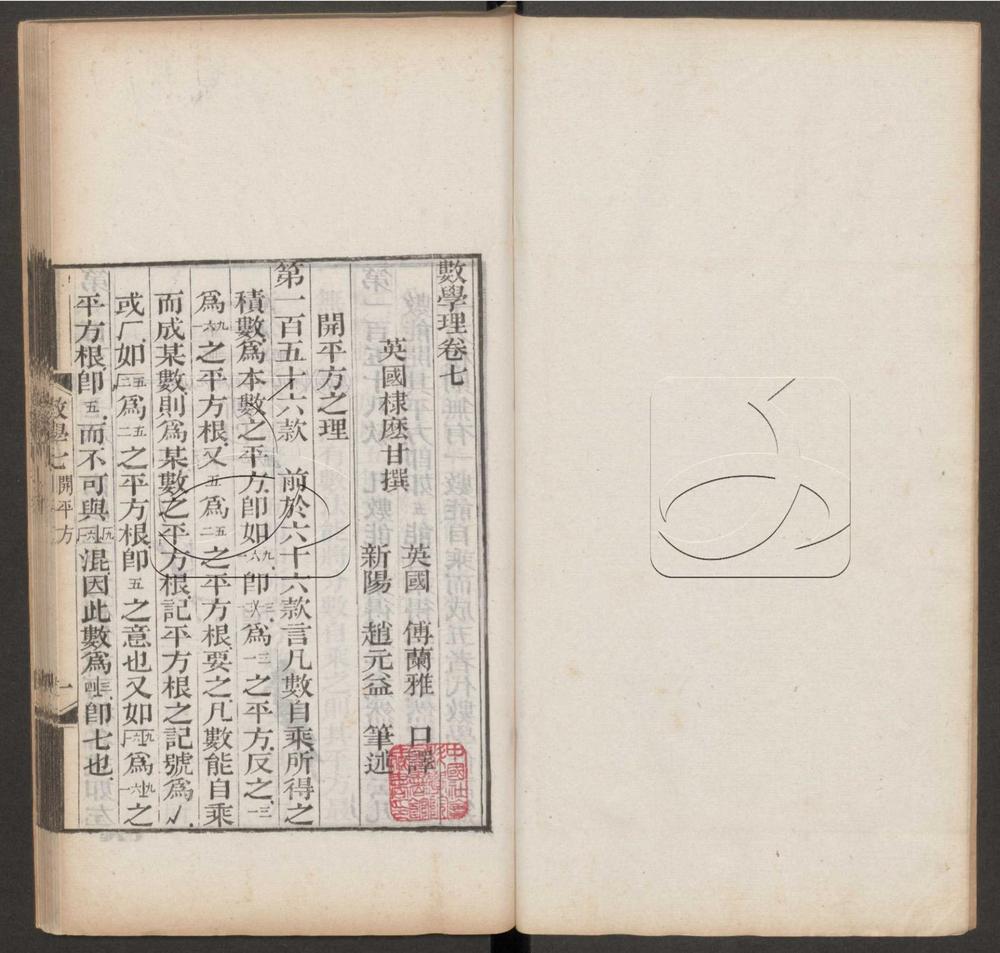 數學理卷七
英國棣麽甘撰
英國　傅蘭雅　口譯
新陽　趙元益　筆述
開平方之理
第一百五十六款　前於六十六款言凡數自乘所得之
積數爲本數之平方卽如
卽
爲
之平方反之
爲
之平方根又五爲
之平方根要之凡數能自乘
而成某數則爲某數之平方根記平方根之記號爲√
或厂如
爲
之平方根卽五之意也又如
爲
之
平方根卽五而不可與
混因此數爲
卽七也
數學七
開平方
一